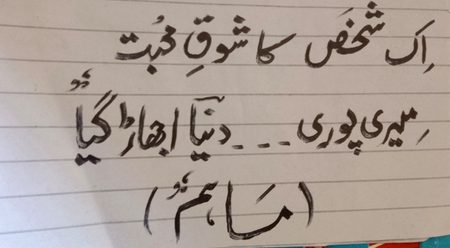 اِک شخص کا شوقِ محبت
میری پوری --- دنیا ابھاڑ گیا
(ماہم)